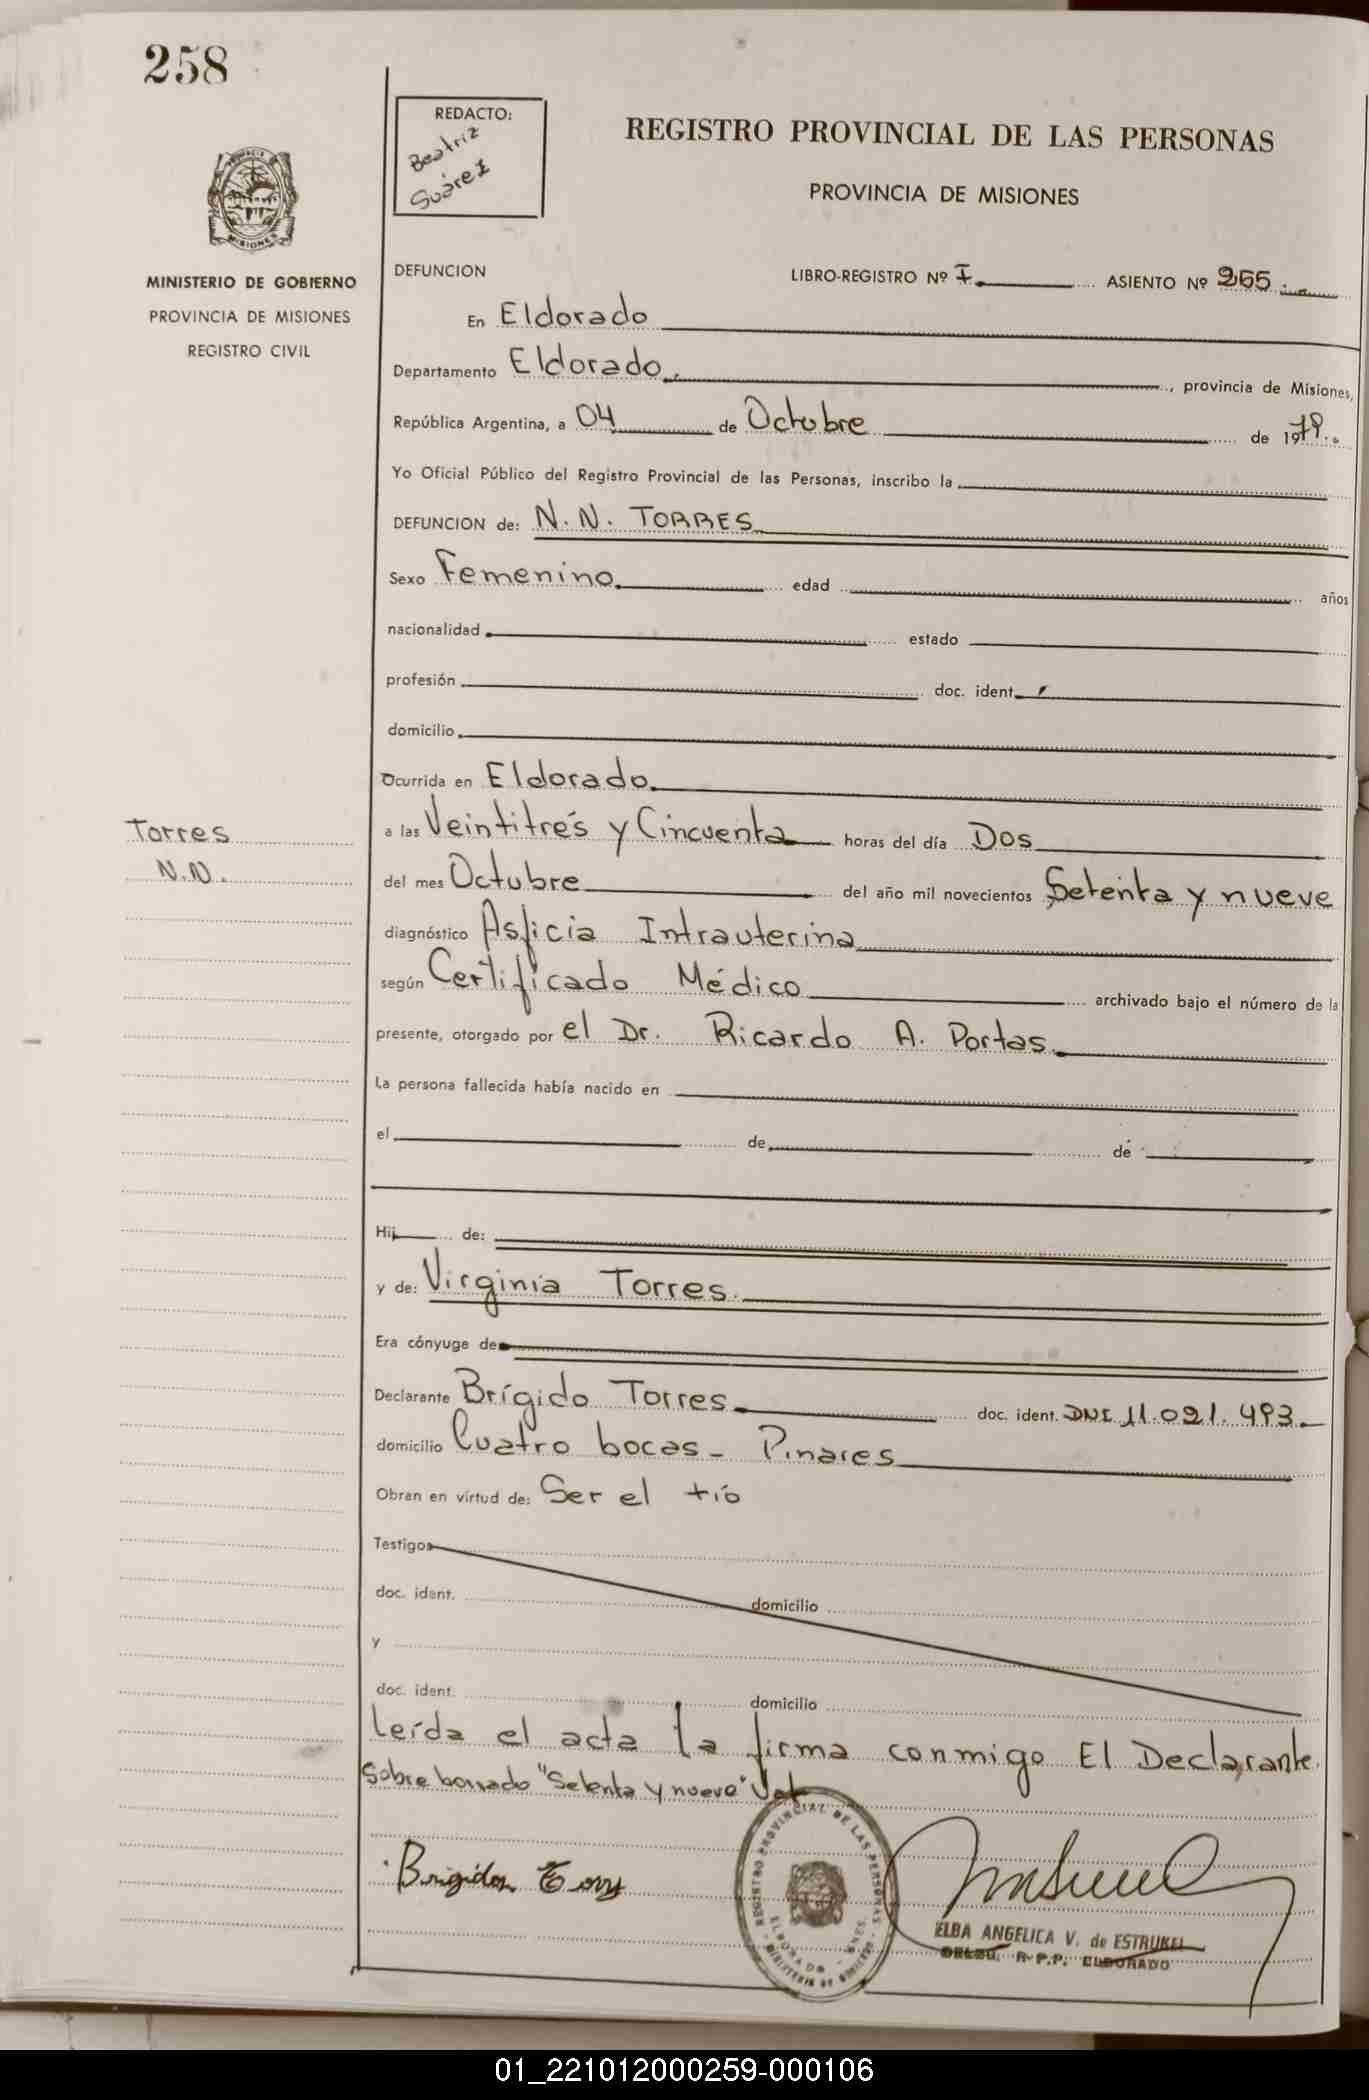 258
REDACTO:
Beatriz
Suárez
REGISTRO PROVINCIAL DE LAS PERSONAS
PROVINCIA DE MISIONES
MISIONES
MINISTERIO DE GOBIERNO
PROVINCIA DE MISIONES
REGISTRO CIVIL
DEFUNCION
LIBRO-REGISTRO Nº I ASIENTO Nº 265
En Eldorado
Departamento Eldorado, provincia de Misiones,
República Argentina, a 04 de Octubre de 1979.
Yo Oficial Público del Registro Provincial de las Personas, inscribo la
DEFUNCION de: N.N. TORRES
Sexo Femenino. edad años
nacionalidad estado
profesión doc. ident.
domicilio
Ocurrida en Eldorado.
a las Veintitrés y Cincuenta horas del día Dos
Torres
N.N.
del mes Octubre del año mil novecientos Setenta y nueve
diagnóstico Asficia Intrauterina
según Certificado Médico archivado bajo el número de la
presente, otorgado por el Dr. Ricardo A. Portas.
La persona fallecida había nacido en
el de de
Hij de:
y de: Virginia Torres.
Era cónyuge de
Declarante Brígido Torres doc. ident. DNI 11.021.493.
domicilio Cuatro bocas - Pinares
Obran en virtud de: Ser el tío
Testigos
doc. ident. domicilio
y
doc. ident. domicilio
Leída el acta la firma conmigo El Declarante.
Sobre borrado "Setenta y nueve" Vale
REGISTRO PROVINCIAL DE LAS PERSONAS
ELDORADO - MNES.
MINISTERIO DE GOBIERNO
ELBA ANGELICA V. de ESTRUKEL
R.P.P. ELDORADO
01_221012000259-000106